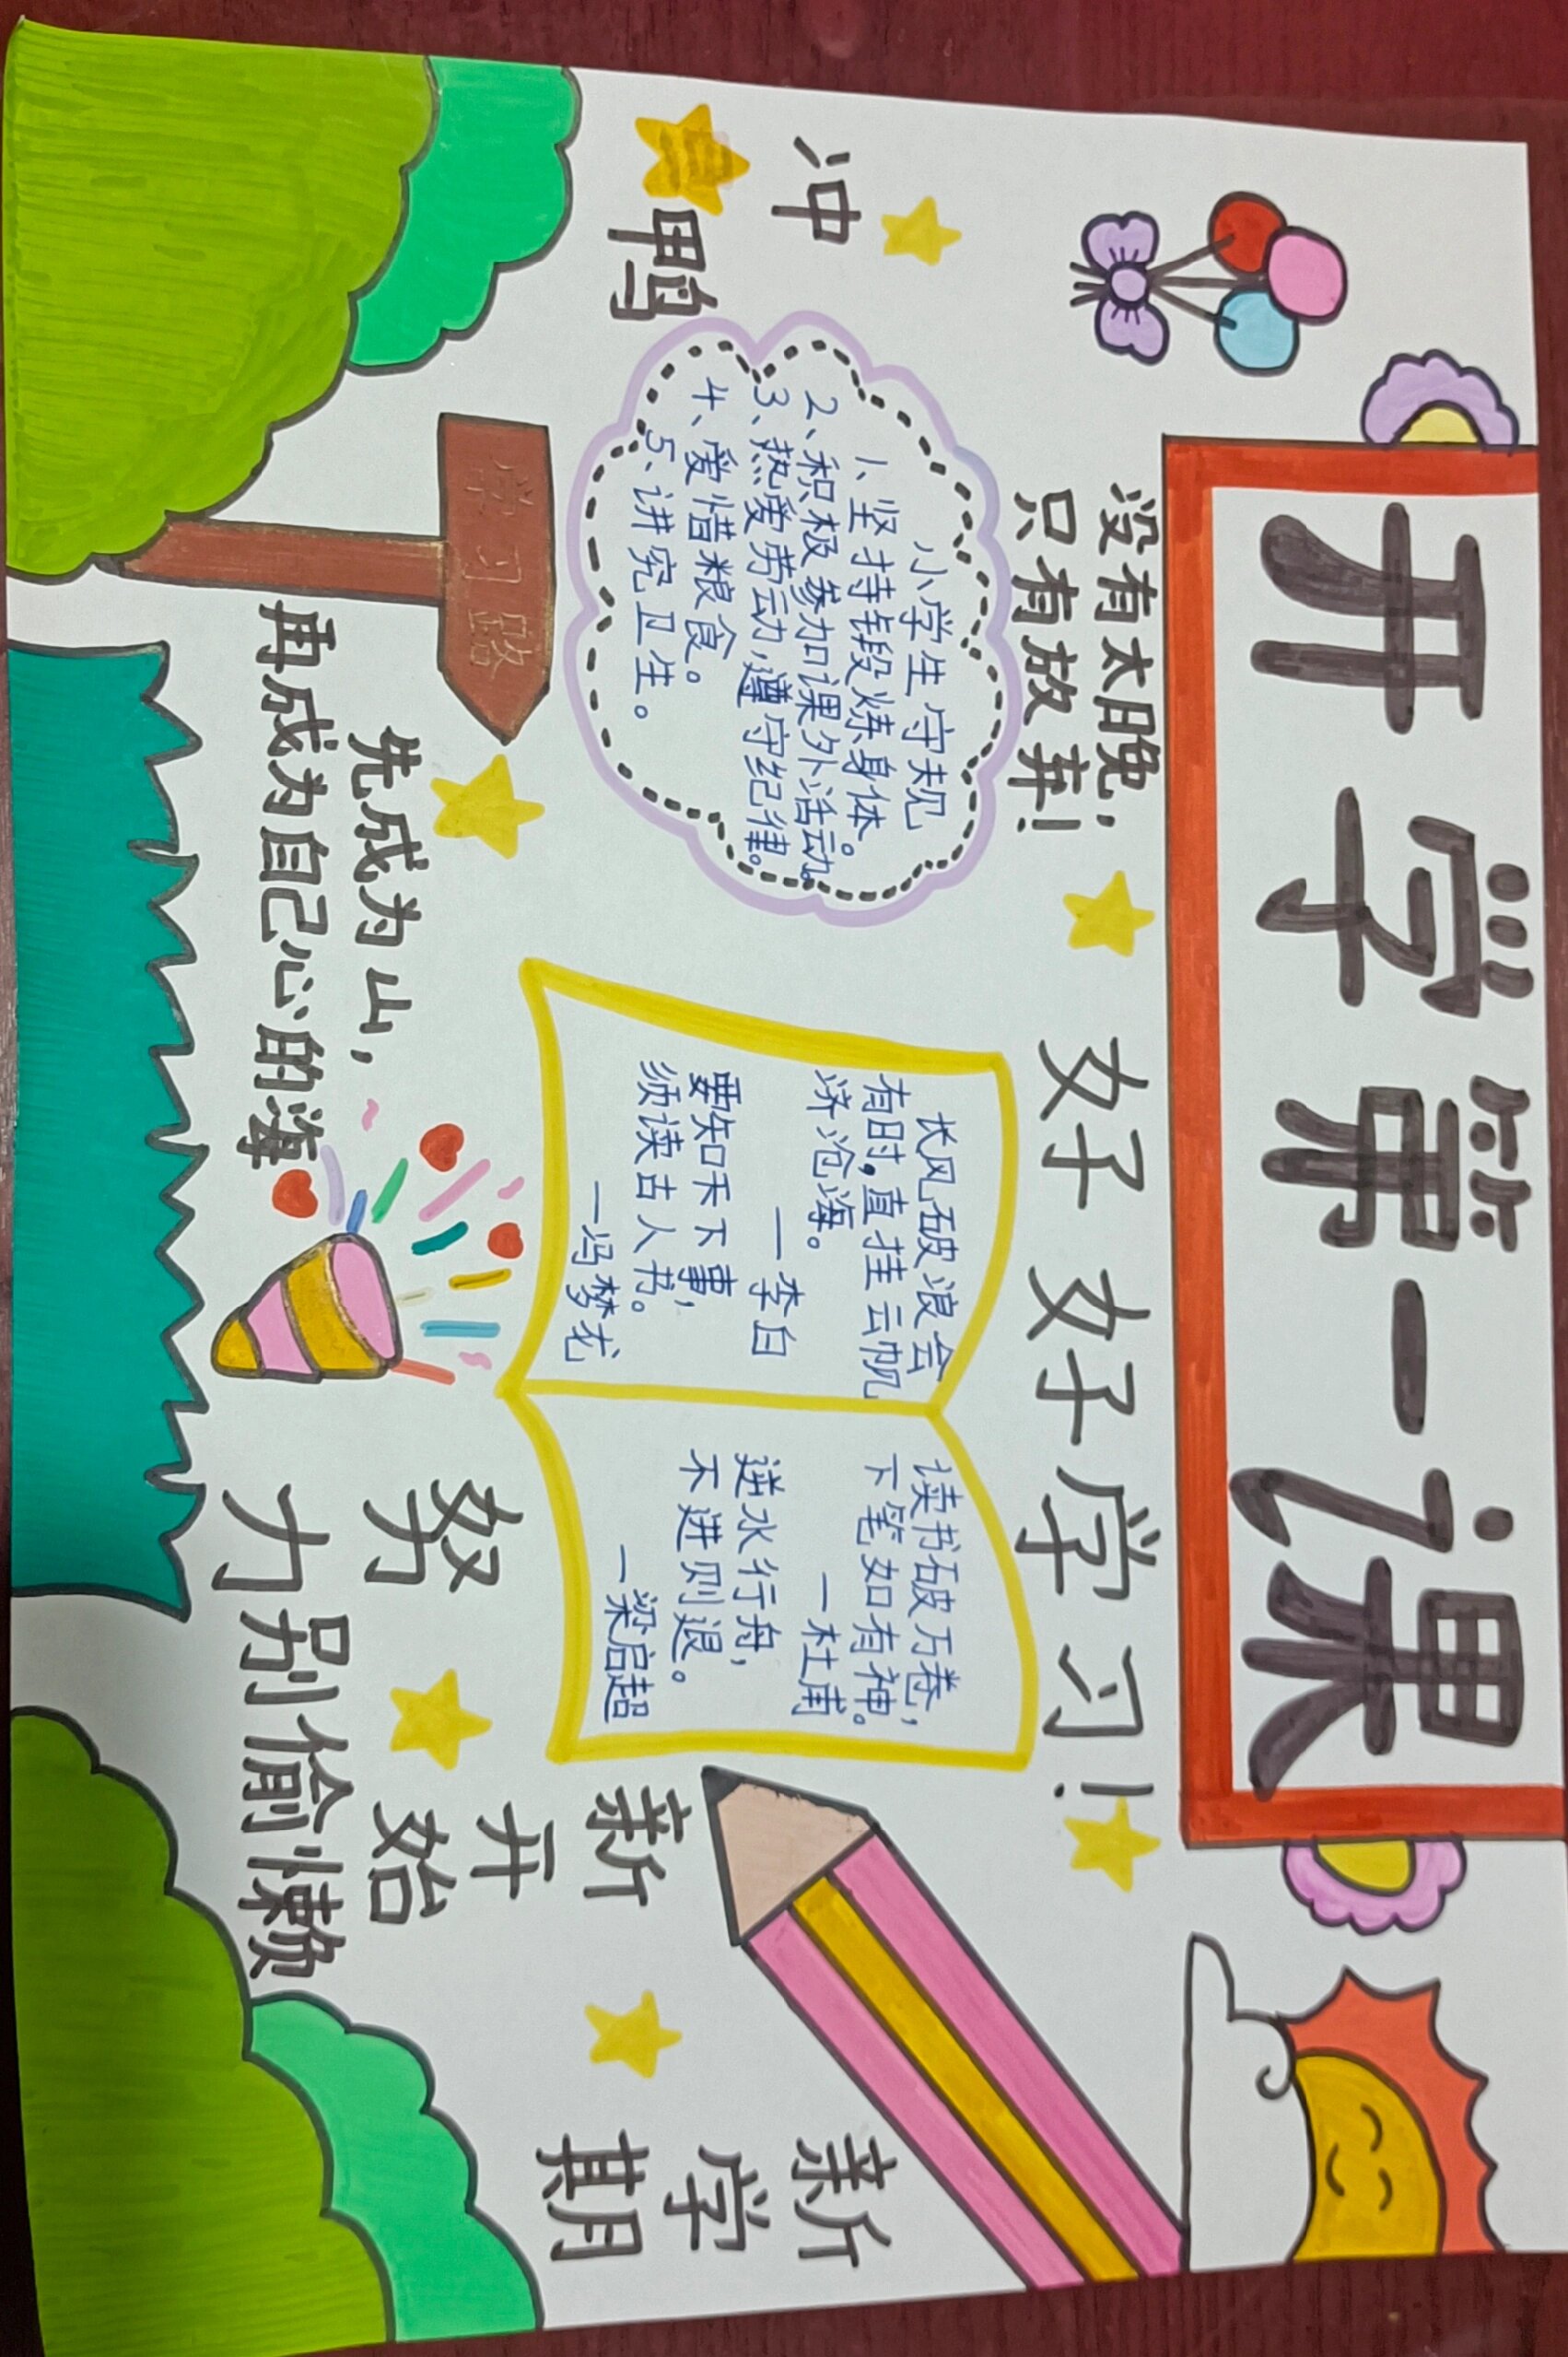 开学第一课
没有太晚，
只有放弃！
好好学习！
冲
鸭
小学生守规
1、坚持锻炼身体。
2、积极参加课外活动。
3、热爱劳动,遵守纪律。
4、爱惜粮食。
5、讲究卫生。
长风破浪会
有时,直挂云帆
济沧海。
一李白
要知天下事，
须读古人书。
一冯梦龙
读书破万卷，
下笔如有神。
一杜甫
逆水行舟，
不进则退。
一梁启超
学习路
先成为山，
再成为自己心的海
努
力别偷懒
新
开
始
新
学
期